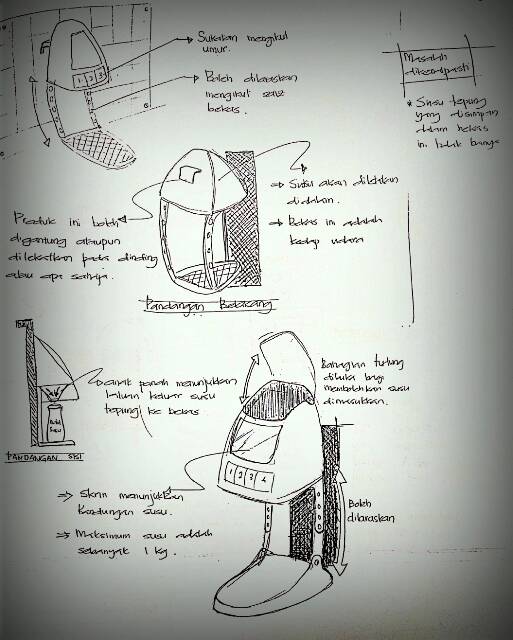 Sukatan mengikut
umur.
1 2 3
Boleh dilaraskan
mengikut saiz
bekas.
Masalah
dikenalpasti
* Susu tepung
yang disimpan
dalam bekas
ini tidak
Susu akan diletakkan
didalam.
Bekas ini adalah
kedap udara
Produk ini boleh
digantung ataupun
dilekatkan pada dinding
atau apa sahaja.
Pandangan Belakang
anak panah menunjukkan
laluan keluar susu
tepung ke bekas
Botol
Susu
PANDANGAN SISI
Bahagian tudung
dibuka bagi
membolehkan susu
dimasukkan.
1 2 3 4
Skrin menunjukkan
kandungan susu.
Maksimum susu adalah
sebanyak 1 kg.
Boleh
dilaraskan